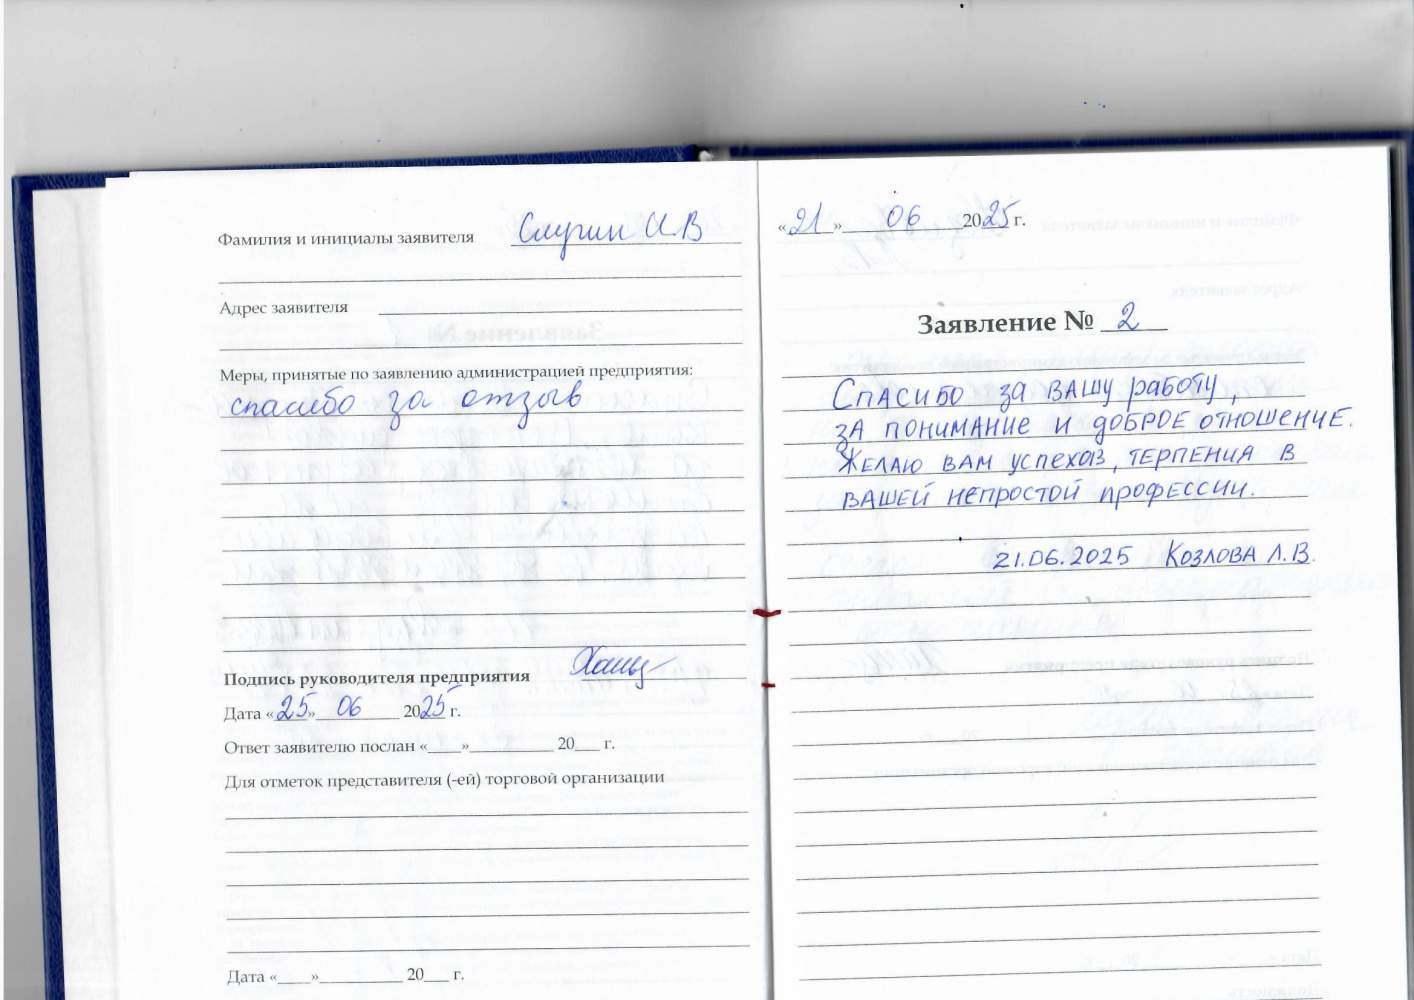 Фамилия и инициалы заявителя Слугин И В
Адрес заявителя
Меры, принятые по заявлению администрацией предприятия:
спасибо за отзыв
Подпись руководителя предприятия
Дата «25» 06 2025 г.
Ответ заявителю послан «____»____________ 20___ г.
Для отметок представителя (-ей) торговой организации
Дата «____»__________ 20___ г.
«21» 06 2025 г.
Заявление № 2
Спасибо за вашу работу,
за понимание и доброе отношение.
Желаю вам успехов, терпения в
вашей непростой профессии.
21.06.2025 Козлова Л.В.